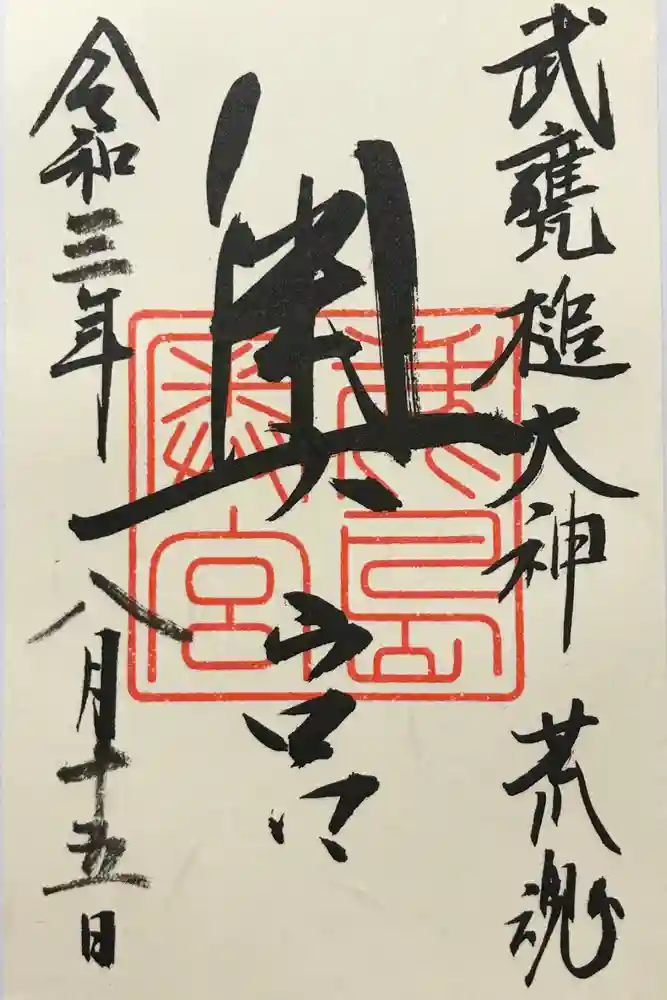 武甕槌大神 荒魂
奥宮
鹿島
奥宮
令和三年八月十五日